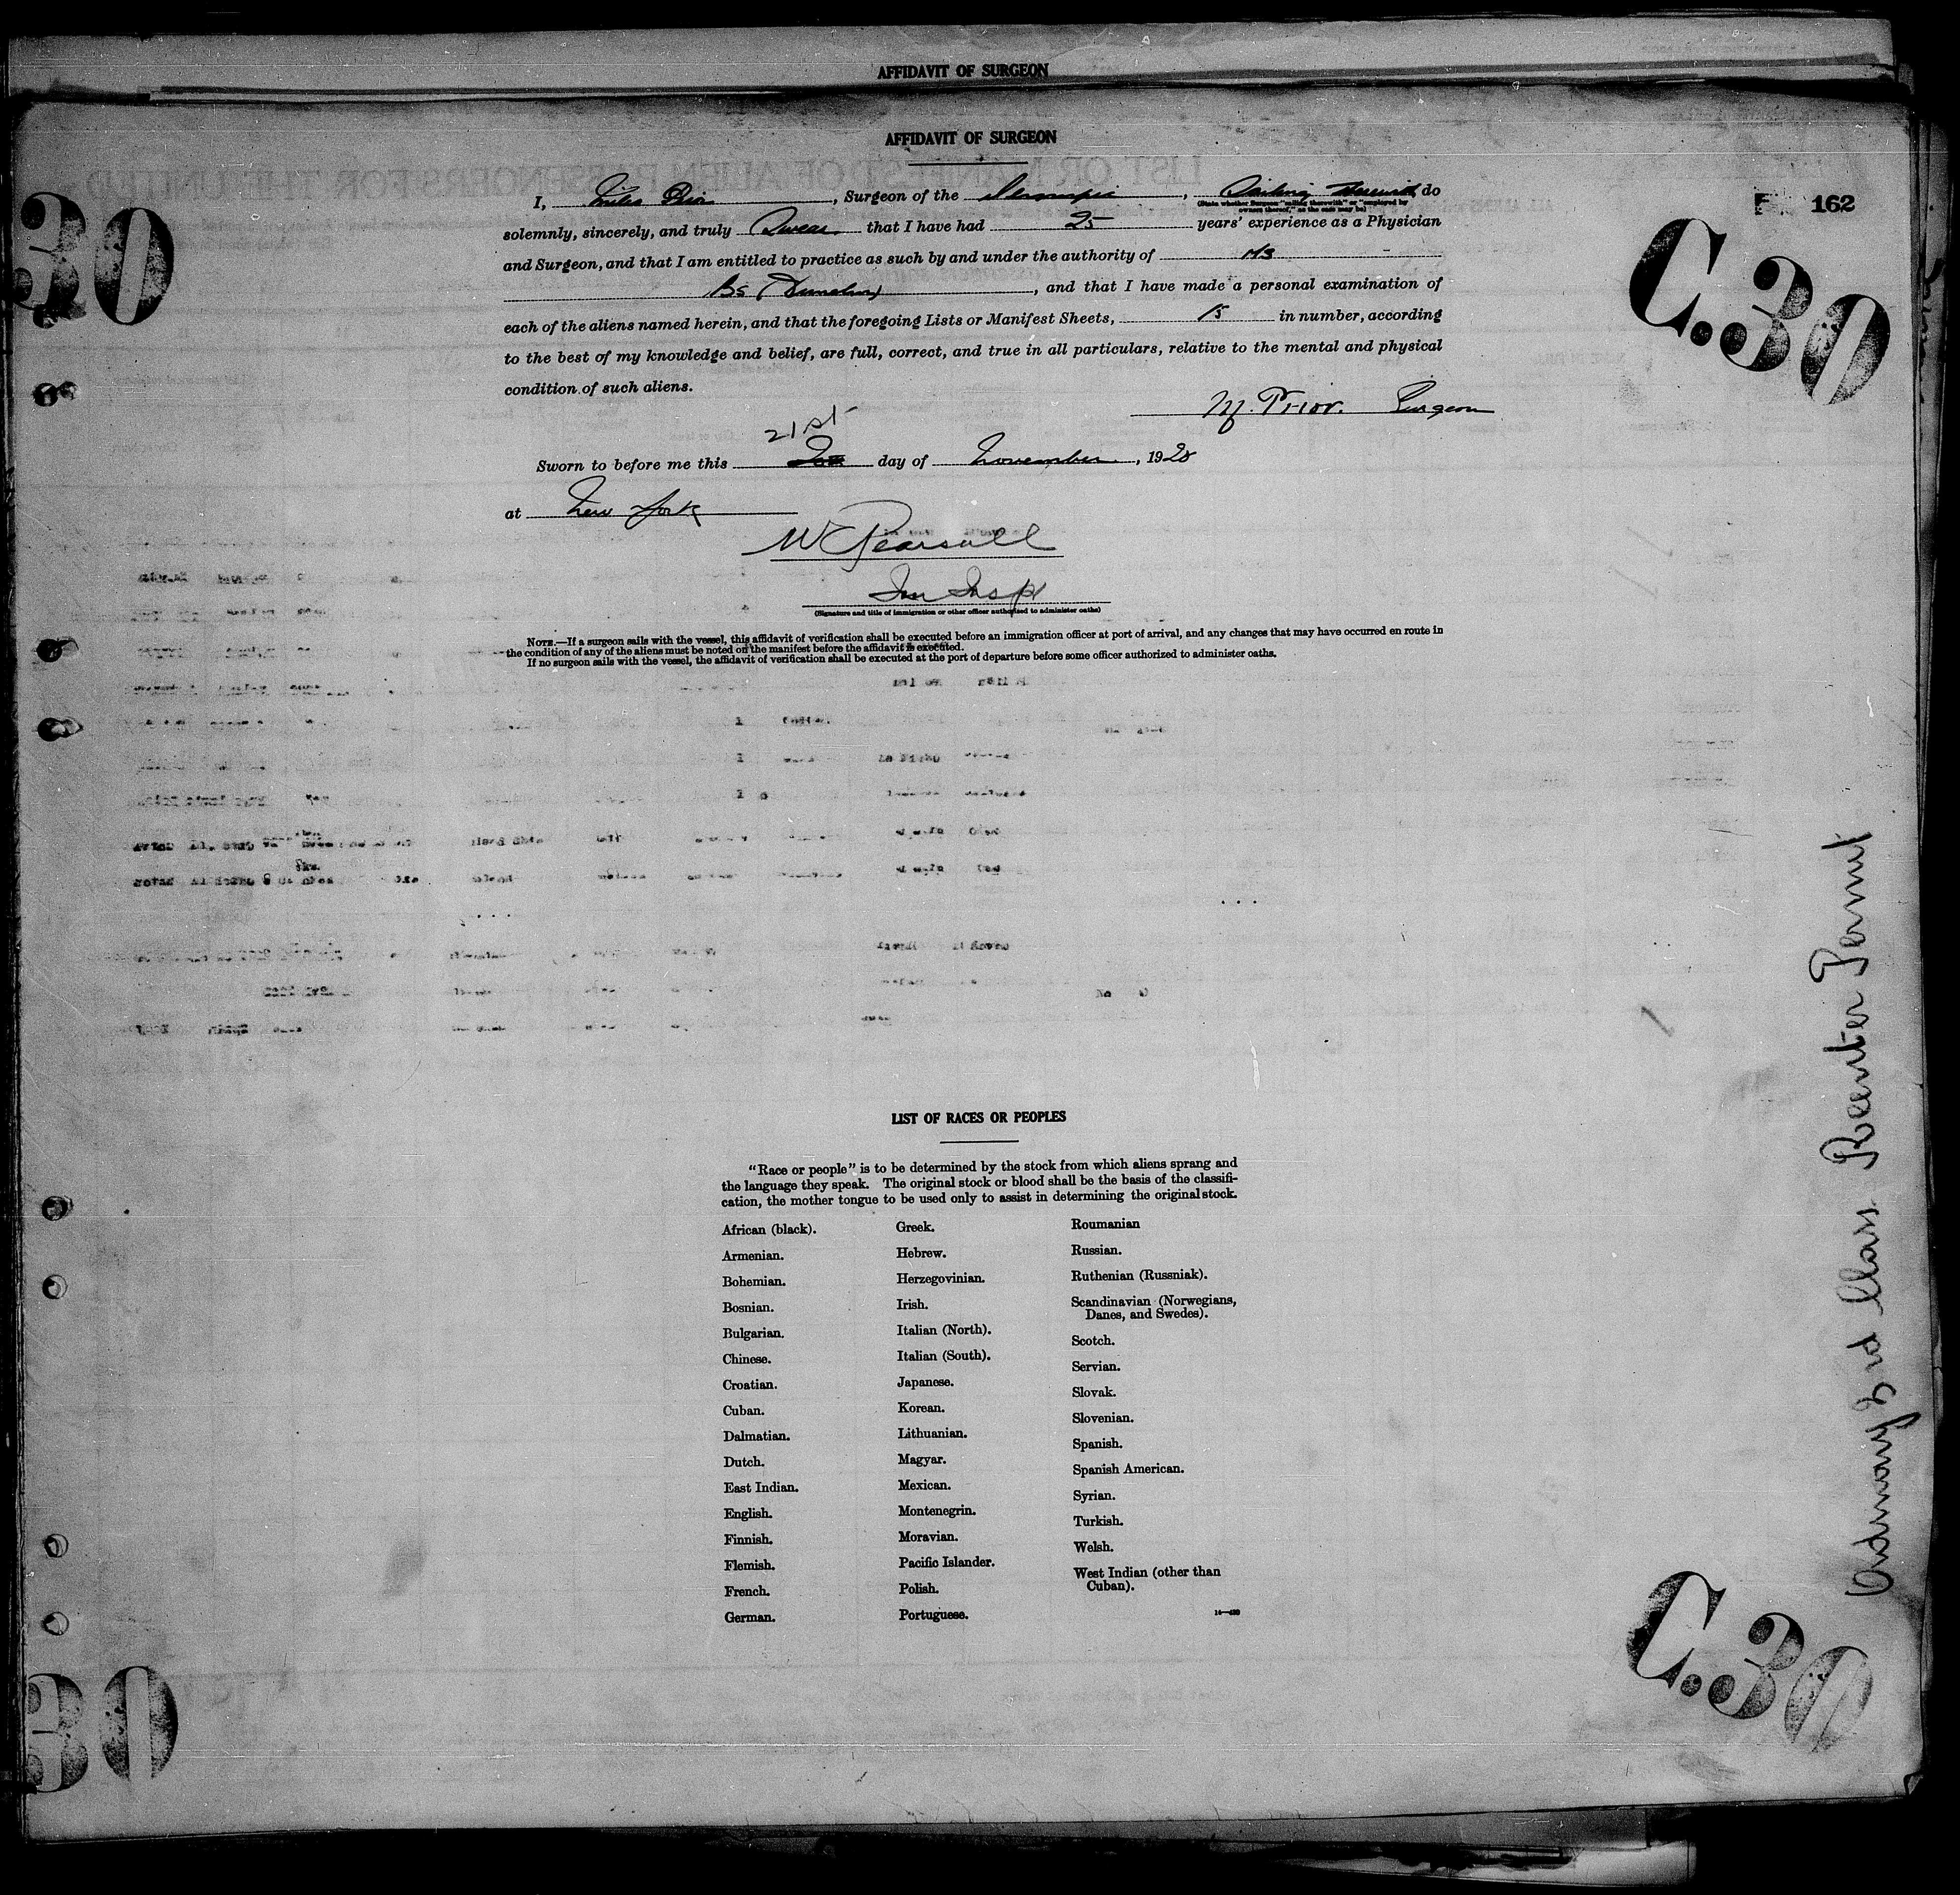 AFFIDAVIT OF SURGEON
AFFIDAVIT OF SURGEON
162
I, Miles Prior, Surgeon of the , Sailing therewith, do
(State whether Surgeon "sailing therewith" or "employed by
owners thereof," as the case may be)
solemnly, sincerely, and truly Swear that I have had 25 years' experience as a Physician
and Surgeon, and that I am entitled to practice as such by and under the authority of MB
Bs (Dunelm), and that I have made a personal examination of
each of the aliens named herein, and that the foregoing Lists or Manifest Sheets, 15 in number, according
to the best of my knowledge and belief, are full, correct, and true in all particulars, relative to the mental and physical
condition of such aliens.
M. Prior. Surgeon
21st
Sworn to before me this day of November, 1928
at New York
W Pearsall
Imm Insp
(Signature and title of immigration or other officer authorized to administer oaths)
NOTE.—If a surgeon sails with the vessel, this affidavit of verification shall be executed before an immigration officer at port of arrival, and any changes that may have occurred en route in
the condition of any of the aliens must be noted on the manifest before the affidavit is executed.
If no surgeon sails with the vessel, the affidavit of verification shall be executed at the port of departure before some officer authorized to administer oaths.
LIST OF RACES OR PEOPLES
"Race or people" is to be determined by the stock from which aliens sprang and
the language they speak. The original stock or blood shall be the basis of the classifi-
cation, the mother tongue to be used only to assist in determining the original stock.
African (black).
Armenian.
Bohemian.
Bosnian.
Bulgarian.
Chinese.
Croatian.
Cuban.
Dalmatian.
Dutch.
East Indian.
English.
Finnish.
Flemish.
French.
German.
Greek.
Hebrew.
Herzegovinian.
Irish.
Italian (North).
Italian (South).
Japanese.
Korean.
Lithuanian.
Magyar.
Mexican.
Montenegrin.
Moravian.
Pacific Islander.
Polish.
Portuguese.
Roumanian
Russian.
Ruthenian (Russniak).
Scandinavian (Norwegians,
Danes, and Swedes).
Scotch.
Servian.
Slovak.
Slovenian.
Spanish.
Spanish American.
Syrian.
Turkish.
Welsh.
West Indian (other than
Cuban).
30
C.30
30
C.30
Ordinary 3rd Class. Reenter Permit